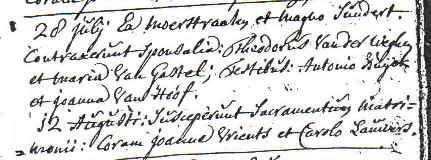 28 julij Ex Moerstraaten et magno Sundert.
Contraxerunt Sponsalia: Theodorus Van der
et Maria Van Gastel; Testibus: Antonio
et joanna Van Hoof.
12 Augusti: Susceperunt Sacramentum Matri-
=monii: Coram joanna Vrients et Carolo Lauwers.